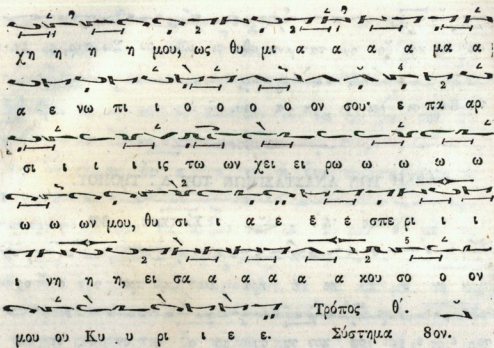 χη η η η μου, ως θυ μι α α α α α μα α
α ε νω πι ι ο ο ο ο ον σου· ε πα αρ
σι ι ι ι ις τω ων χει ει ρω ω ω ω ω
ω ω ων μου, θυ σι ι α ε ε ε σπε ρι ι ι
νη η η, ει σα α α α α α κου σο ο ον
μου ου Κυ υ ρι ι ε ε. Τρόπος θ΄.
Σύστημα 8ον.